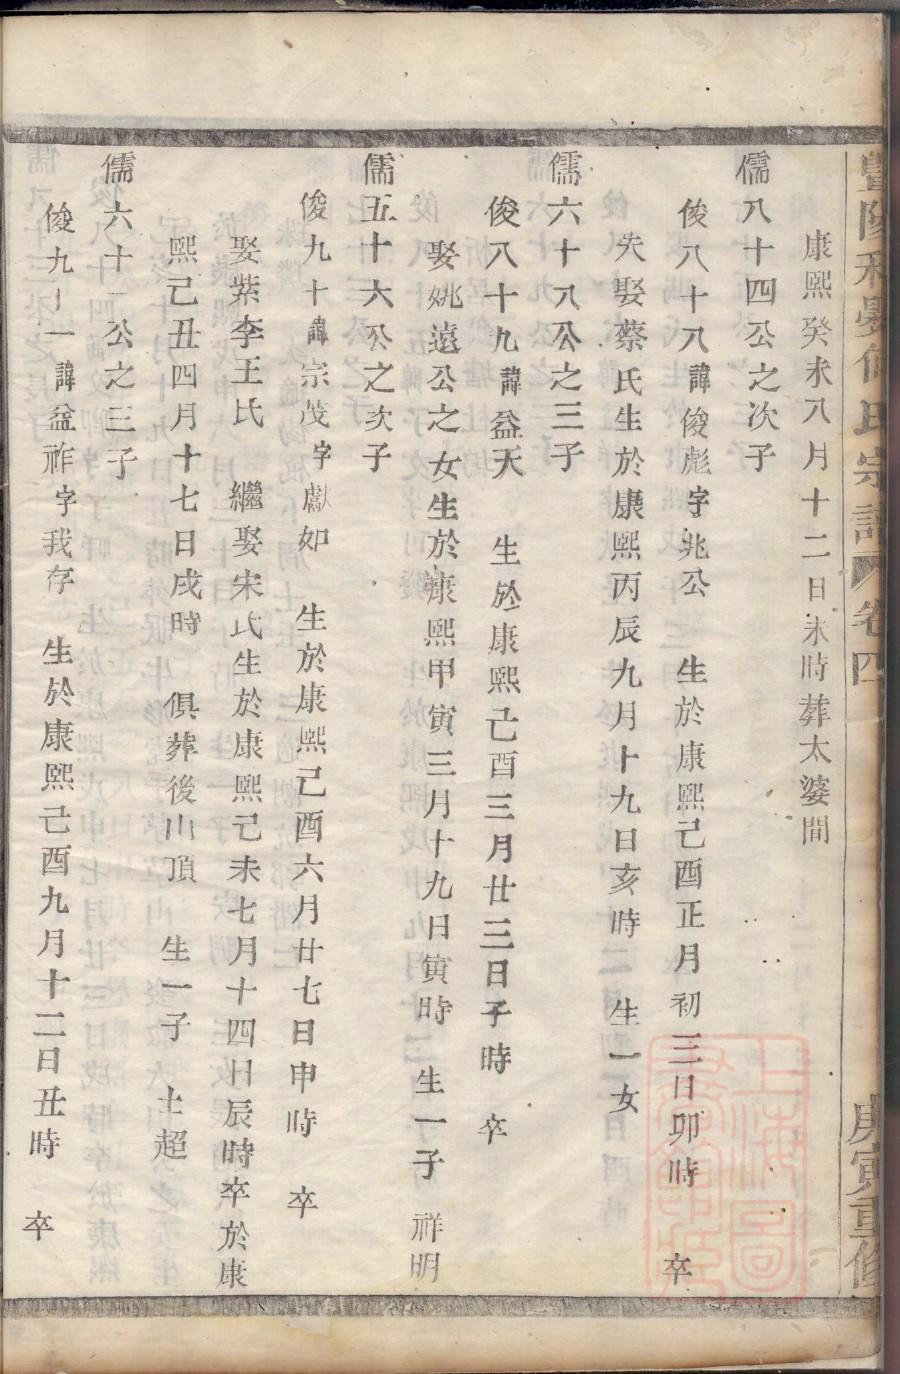 宗譜 卷四 庚寅重修
康熙癸未八月十二日未時葬太婆間
儒八十四公之次子
俊八十八諱俊彪字兆公 生於康熙己酉正月初三日卯時 卒
失娶蔡氏生於康熙丙辰九月十九日亥時 生一女
儒六十八公之三子
俊八十九諱益天 生於康熙己酉三月廿三日子時 卒
娶姚遠公之女生於康熙甲寅三月十九日寅時 生一子 祥明
儒五十六公之次子
俊九十諱宗茂字獻如 生於康熙己酉六月廿七日申時 卒
娶紫李王氏 繼娶宋氏生於康熙己未七月十四日辰時卒於康
熙己丑四月十七日戌時 俱葬後山頂 生一子 士超
儒六十一公之三子
俊九十一諱益祚字我存 生於康熙己酉九月十二日丑時 卒